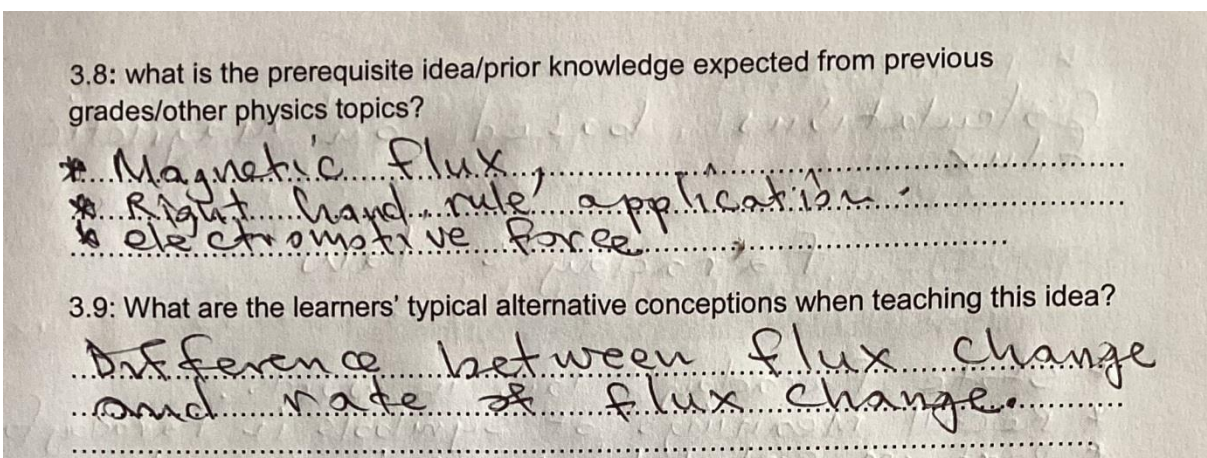 3.8: what is the prerequisite idea/prior knowledge expected from previous
grades/other physics topics?
* Magnetic flux,
* Right hand rule application.
* electromotive force
3.9: What are the learners' typical alternative conceptions when teaching this idea?
Difference between flux change
and rate of flux change.